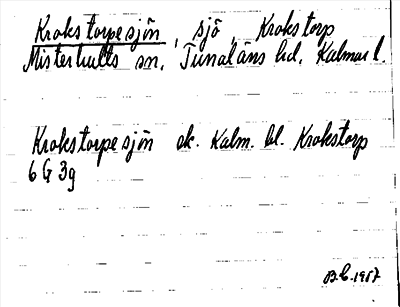 Krokstorpesjön, sjö, Krokstorp
Misterhults sn. Tunaläns hd. Kalmar l.
Krokstorpesjön ek. Kalm. bl. Krokstorp
6 G 3g
B.C. 1957